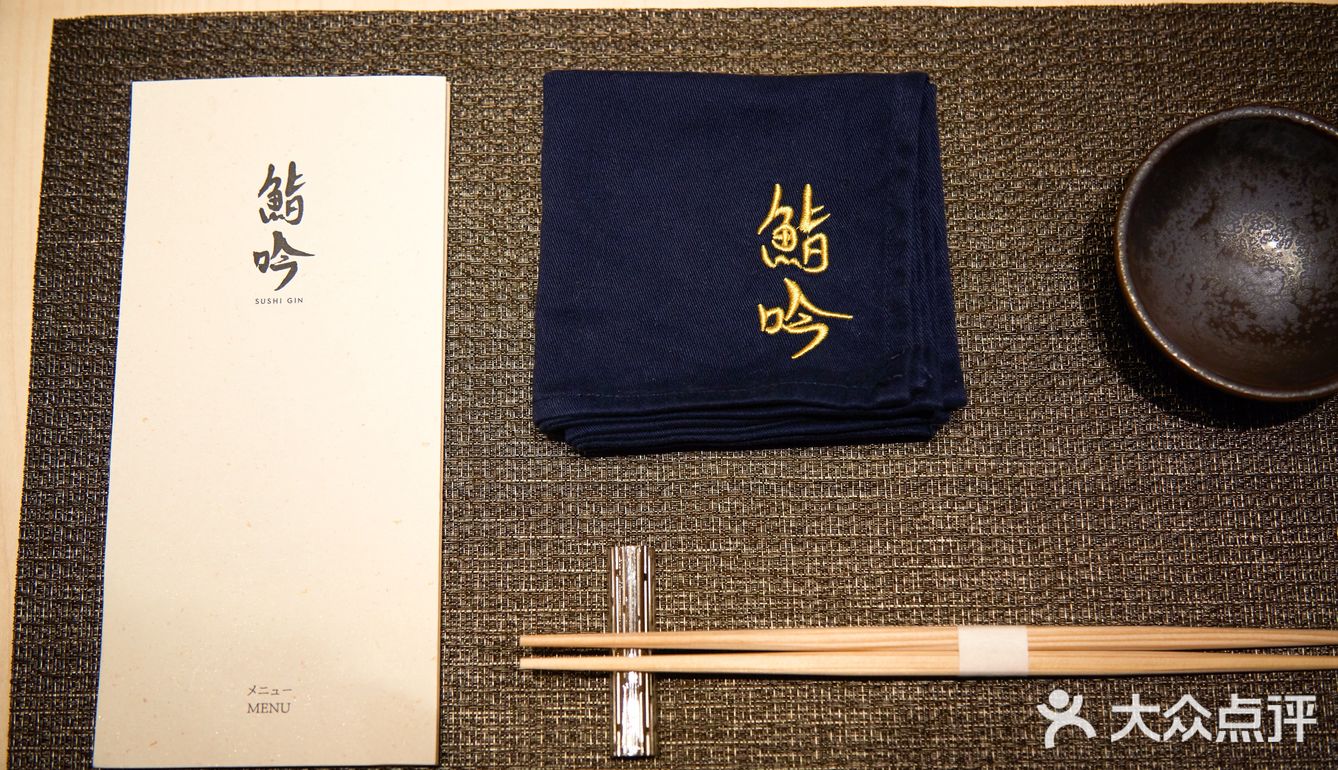 鮨
吟
SUSHI GIN
メニュー
MENU
鮨
吟
大众点评